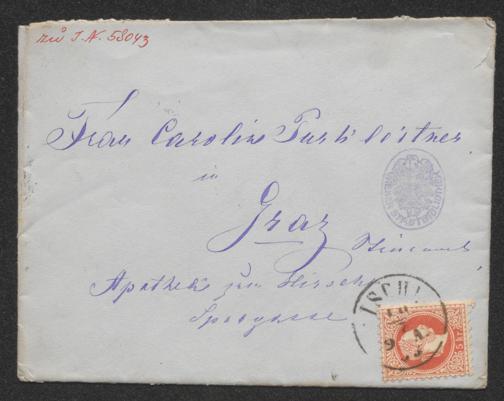 zu I.N. 58043
Frau Carolin Purkholstner
in
Graz
Apothek zum Hirsch
Sporgasse
ISCHL